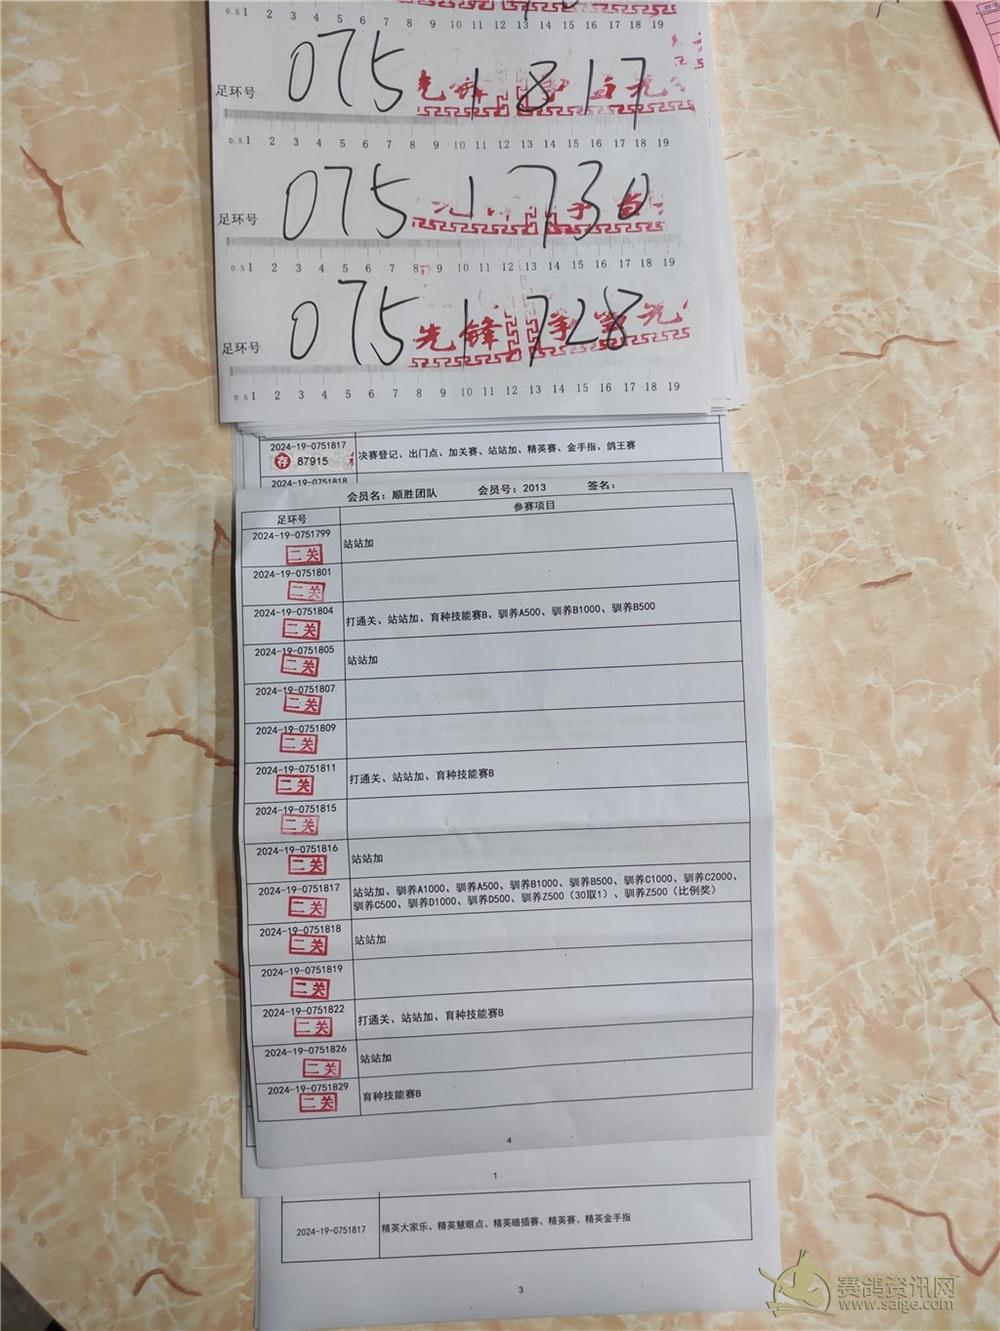 0.5 1 2 3 4 5 6 7 8 9 10 11 12 13 14 15 16 17 18 19
足环号 0751817
0.5 1 2 3 4 5 6 7 8 9 10 11 12 13 14 15 16 17 18 19
足环号 0751730
0.5 1 2 3 4 5 6 7 8 9 10 11 12 13 14 15 16 17 18 19
足环号 0751728
先锋
0.5 1 2 3 4 5 6 7 8 9 10 11 12 13 14 15 16 17 18 19
2024-19-0751817 决赛登记、出门点、加关赛、站站加、精英赛、金手指、鸽王赛
存 87915
2024-19-0751818
会员名：顺胜团队 会员号：2013 签名：
足环号 参赛项目
2024-19-0751799 站站加
二关
2024-19-0751801
二关
2024-19-0751804 打通关、站站加、育种技能赛B、驯养A500、驯养B1000、驯养B500
二关
2024-19-0751805 站站加
二关
2024-19-0751807
二关
2024-19-0751809
二关
2024-19-0751811 打通关、站站加、育种技能赛B
二关
2024-19-0751815
二关
2024-19-0751816 站站加
二关
2024-19-0751817 站站加、驯养A1000、驯养A500、驯养B1000、驯养B500、驯养C1000、驯养C2000、
二关 驯养C500、驯养D1000、驯养D500、驯养Z500（30取1）、驯养Z500（比例奖）
2024-19-0751818 站站加
二关
2024-19-0751819
二关
2024-19-0751822 打通关、站站加、育种技能赛B
二关
2024-19-0751826 站站加
二关
2024-19-0751829 育种技能赛B
二关
4
1
2024-19-0751817 精英大家乐、精英慧眼点、精英暗插赛、精英赛、精英金手指
3
赛鸽资讯网
www.saige.com